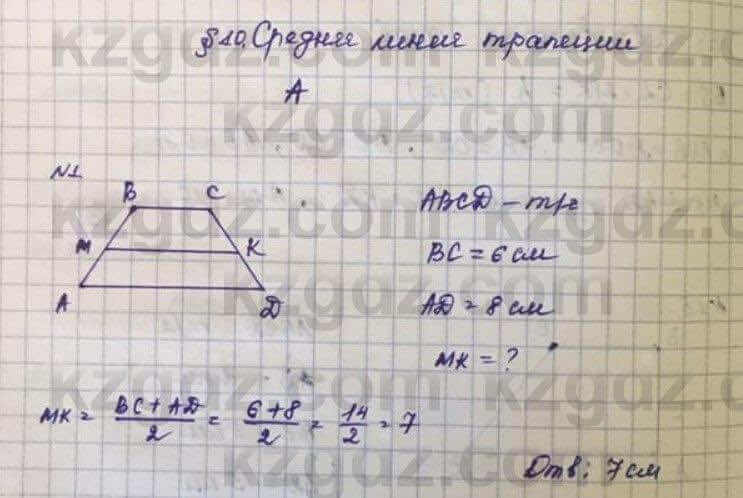 §10. Средняя линия трапеции
А
№1
B C
ABCD – тр.
M K
BC = 6 см
A D
AD = 8 см
MK = ?
MK = BC + AD / 2 = 6 + 8 / 2 = 14 / 2 = 7
Отв: 7 см
kzgdz.com